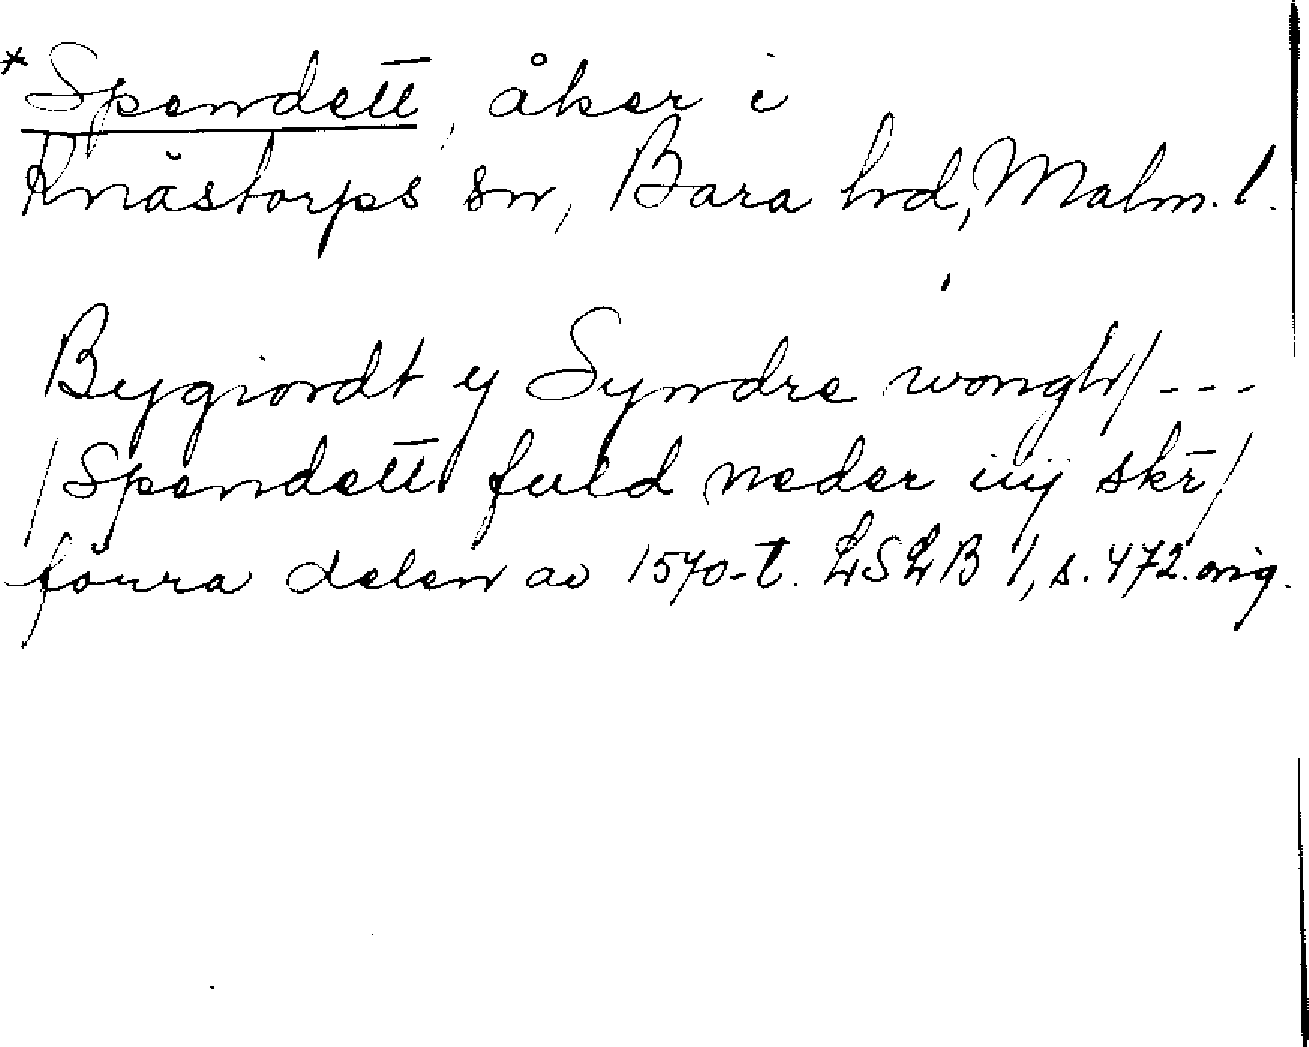 *Spendett̅, åker i
Knästorps sn, Bara hd, Malm. l.
Bygiordt y Syndre wongh/ ---
/Spendett̅ fuld neder iiij skr̅/
förra delen av 1570-t. LSLB 1, s. 472. orig.